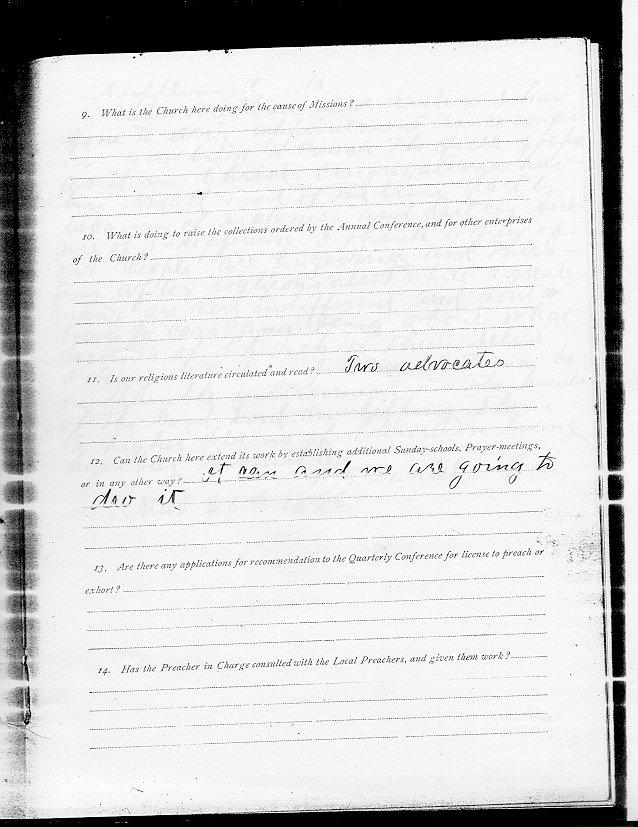 9. What is the Church here doing for the cause of Missions?
10. What is doing to raise the collections ordered by the Annual Conference, and for other enterprises
of the Church?
11. Is our religious literature circulated and read? Two advocates
12. Can the Church here extend its work by establishing additional Sunday-schools, Prayer-meetings,
or in any other way? it can and we are going to
doo it
13. Are there any applications for recommendation to the Quarterly Conference for license to preach or
exhort?
14. Has the Preacher in Charge consulted with the Local Preachers, and given them work?